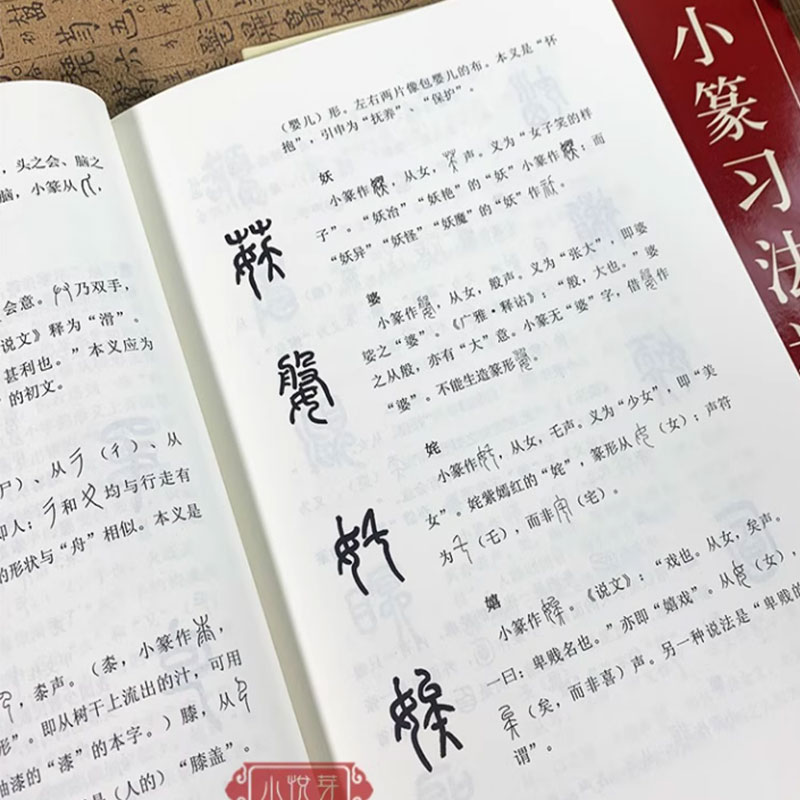 ，头之会、脑之
脑，小篆从，
会意。乃双手，
说文》释为“滑”。
甚利也。”本义应为
的初文。
尸）、从（彳）、从
即人；和均与行走有
的形状与“舟”相似。本义是
，桼声。（桼，小篆作，
形”。即从树干上流出的汁，可用
油漆的“漆”的本字。）膝，从
是（人的）“膝盖”。
（婴儿）形。左右两片像包婴儿的布。本义是“怀
抱”，引申为“抚养”、“保护”。
妖
小篆作，从女，声。义为“女子笑的样
子”。“妖冶”“妖艳”的“妖”小篆作；而
“妖异”“妖怪”“妖魔”的“妖”作。
婆
小篆作，从女，般声。义为“张大”，即婆
娑之“婆”。《广雅·释诂》：“般，大也。”婆
之从般，亦有“大”意。小篆无“婆”字，借作
“婆”。不能生造篆形。
姹
小篆作，从女，乇声。义为“少女”，即“美
女”。姹紫嫣红的“姹”，篆形从（女）；声符
为（乇），而非（宅）。
嬉
小篆作。《说文》：“戏也。从女，矣声。
一曰：卑贱名也。”亦即“嬉戏”。从（女），
（矣，而非喜）声。另一种说法是“卑贱的
谓”。
小篆习法
小悦芽